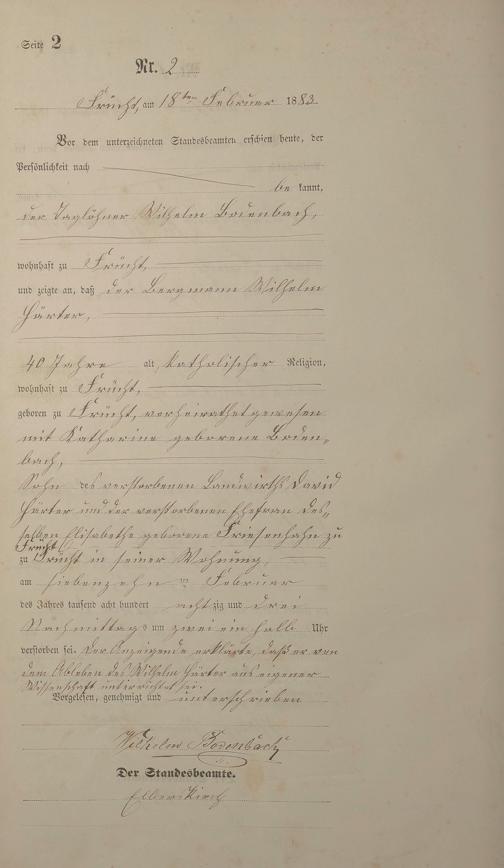 Seite 2
Nr. 2
Frücht, am 18ten Februar 1883
Vor dem unterzeichneten Standesbeamten erschien heute, der
Persönlichkeit nach
be kannt,
der Taglöhner Wilhelm Bodenbach,
wohnhaft zu Frücht,
und zeigte an, daß der Bergmann Wilhelm
Härter,
40 Jahre alt, katholischer Religion,
wohnhaft zu Frücht,
geboren zu Frücht, verheirathet gewesen
mit Katharine geborene Boden-
bach,
Sohn des verstorbenen Landwirths David
Härter und der verstorbenen Ehefrau des-
selben Elisabethe geborene Friesenhahn zu
Frücht
zu Frücht in seiner Wohnung,
am siebenzehnten Februar
des Jahres tausend acht hundert achtzig und drei
Nachmittags um zwei ein halb Uhr
verstorben sei. Der Anzeigende erklärte, daß er von
dem Ableben des Wilhelm Härter aus eigener
Wissenschaft unterrichtet sei.
Vorgelesen, genehmigt und unterschrieben
Wilhelm Bodenbach
Der Standesbeamte.